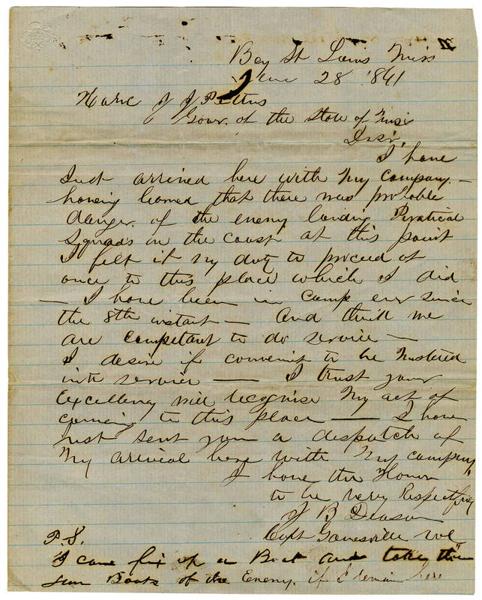 Bay St Louis Miss
June 28 1861
Hon J J Pettus
Govr. of the State of Miss
Dsir,
I have
Just arrived here with My Company —
having learned that there was probable
danger of the enemy landing Piratical
Squads on the coast at this point
I felt it my duty to proceed at
once to this place which I did
— I have been in camp ever since
the 8th instant — And think we
are competant to do service —
I desire if convenient to be mustered
into service — I trust your
excellency will recognise My act of
coming to this place — I have
just sent you a dispatch of
My arrival here with My company
I have the Honor
to be very Respectfuly
J B Deason
Capt Gainesville Vol
P.S.
I can fix up a Boat and take the
Gun Boats of the Enemy. if I remain here